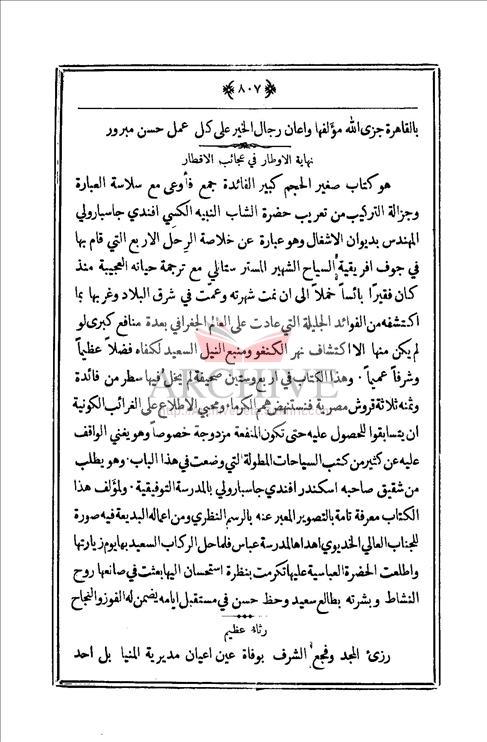 ﴿٨٠٧﴾
بالقاهرة جزى الله مؤلفها واعان رجال الخير على كل عمل حسن مبرور
نهاية الاوطار في عجائب الاقطار
هو كتاب صغير الحجم كبير الفائدة جمع فأوعى مع سلاسة العبارة
وجزالة التركيب من تعريب حضرة الشاب النبيه الكسي افندي جاسبارولي
المهندس بديوان الاشغال وهو عبارة عن خلاصة الرحل الاربع التي قام بها
في جوف افريقية السياح الشهير المستر ستانلي مع ترجمة حياته العجيبة منذ
كان فقيرًا بائساً خملاً الى ان نمت شهرته وعمت في شرق البلاد وغربها بما
اكتشفه من الفوائد الجليلة التي عادت على العالم الجغرافي بعدة منافع كبرى لو
لم يكن منها الا اكتشاف نهر الكنغو ومنبع النيل السعيد لكفاه فضلاً عظيماً
وشرفاً عمياً ٠ وهذا الكتاب في اربع وستين صحيفة لم يخل فيها سطر من فائدة
وثمنه ثلاثة قروش مصرية فنستنهض همم الكرماء ومحبي الاطلاع على الغرائب الكونية
ان يتسابقوا للحصول عليه حتى تكون المنفعة مزدوجة خصوصاً وهو يغني الواقف
عليه عن كثير من كتب السياحات المطولة التي وضعت في هذا الباب ٠ وهو يطلب
من شقيق صاحبه اسكندر افندي جاسبارولي بالمدرسة التوفيقية ٠ ولمؤلف هذا
الكتاب معرفة تامة بالتصوير المعبر عنه بالرسم النظري ومن اعماله البديعة فيه صورة
للجناب العالي الخديوي اهداها لمدرسة عباس فلما حل الركاب السعيد بها يوم زيارتها
واطلعت الحضرة العباسية عليها تكرمت بنظرة استحسان اليها بعثت في صانعها روح
النشاط وبشرته بطالع سعيد وحظ حسن في مستقبل ايامه يضمن له الفوز والنجاح
رثاء عظيم
رزئ المجد وفجع الشرف بوفاة عين اعيان مديرية المنيا بل احد
ARCHIVE